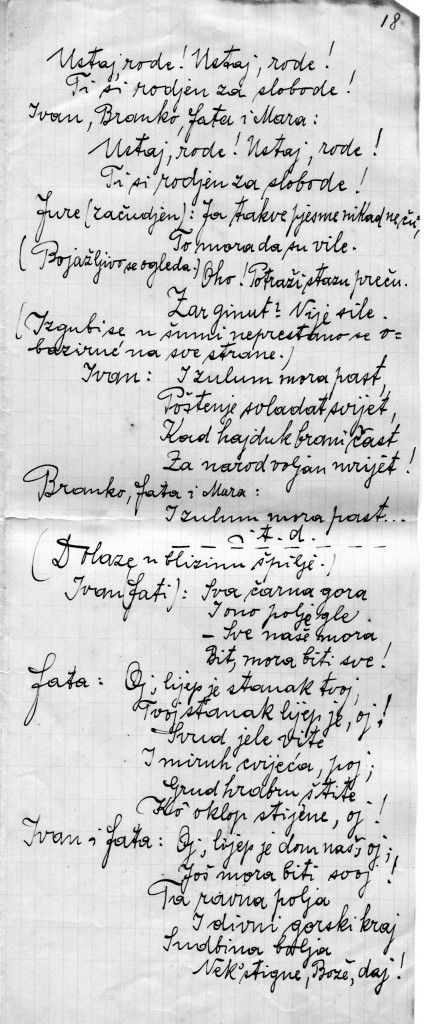 18
Ustaj, rode! Ustaj, rode!
Ti si rodjen za slobode!
Ivan, Branko, Fata i Mara:
Ustaj, rode! Ustaj, rode!
Ti si rodjen za slobode!
Jure (začudjen): Ja takve pjesme nikad ne ču,
To mora da su vile.
(Bojažljivo se ogleda.) Oho! Potraži stazu preču.
Zar ginut? Nije sile.
(Izgubi se u šumi neprestano se o=
baziruć na sve strane.)
Ivan: I zulum mora past,
Poštenje svladat svijet,
Kad hajduk brani čast
Za narod voljan mrijet!
Branko, Fata i Mara:
I zulum mora past...
i. t. d.
(Dolaze u blizinu špilje.)
Ivan (Fati): Sva čarna gora
I ono polje gle.
– Sve naše mora
Bit, mora biti sve!
Fata: Oj, lijep je stanak tvoj,
Tvoj stanak lijep je, oj!
Svud jele vite
I miruh cvijeća, poj;
Grud hrabru štite
Kô oklop stijene, oj!
Ivan i Fata: Oj, lijep je dom naš, oj,
Još mora biti svoj!
Ta ravna polja
I divni gorski kraj
Sudbina bolja
Nek' stigne, Bože, daj!